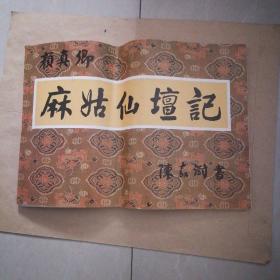 顏真卿
麻姑仙壇記
陳
書